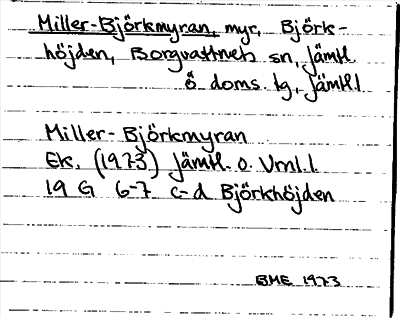 Miller-Björkmyran, myr, Björk-
höjden, Borgvattnets sn, Jämtl
ö doms. tg, Jämtl. l
Miller-Björkmyran
Ek. (1973) Jämtl. o. Vrnl. l.
19 G 6-7 c-d Björkhöjden
BME 1973